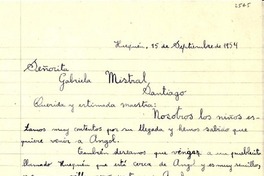 2565
Huequén, 25 de Septiembre de 1954
Señorita
Gabriela Mistral,
Santiago
Querida y estimada maestra:
Nosotros los niños es-
tamos muy contentos por su llegada y hemos sabido que
quiere venir a Angol.
También deseamos que venga a un pueblito
llamado Huequén que está cerca de Angol y es muy sencillo,